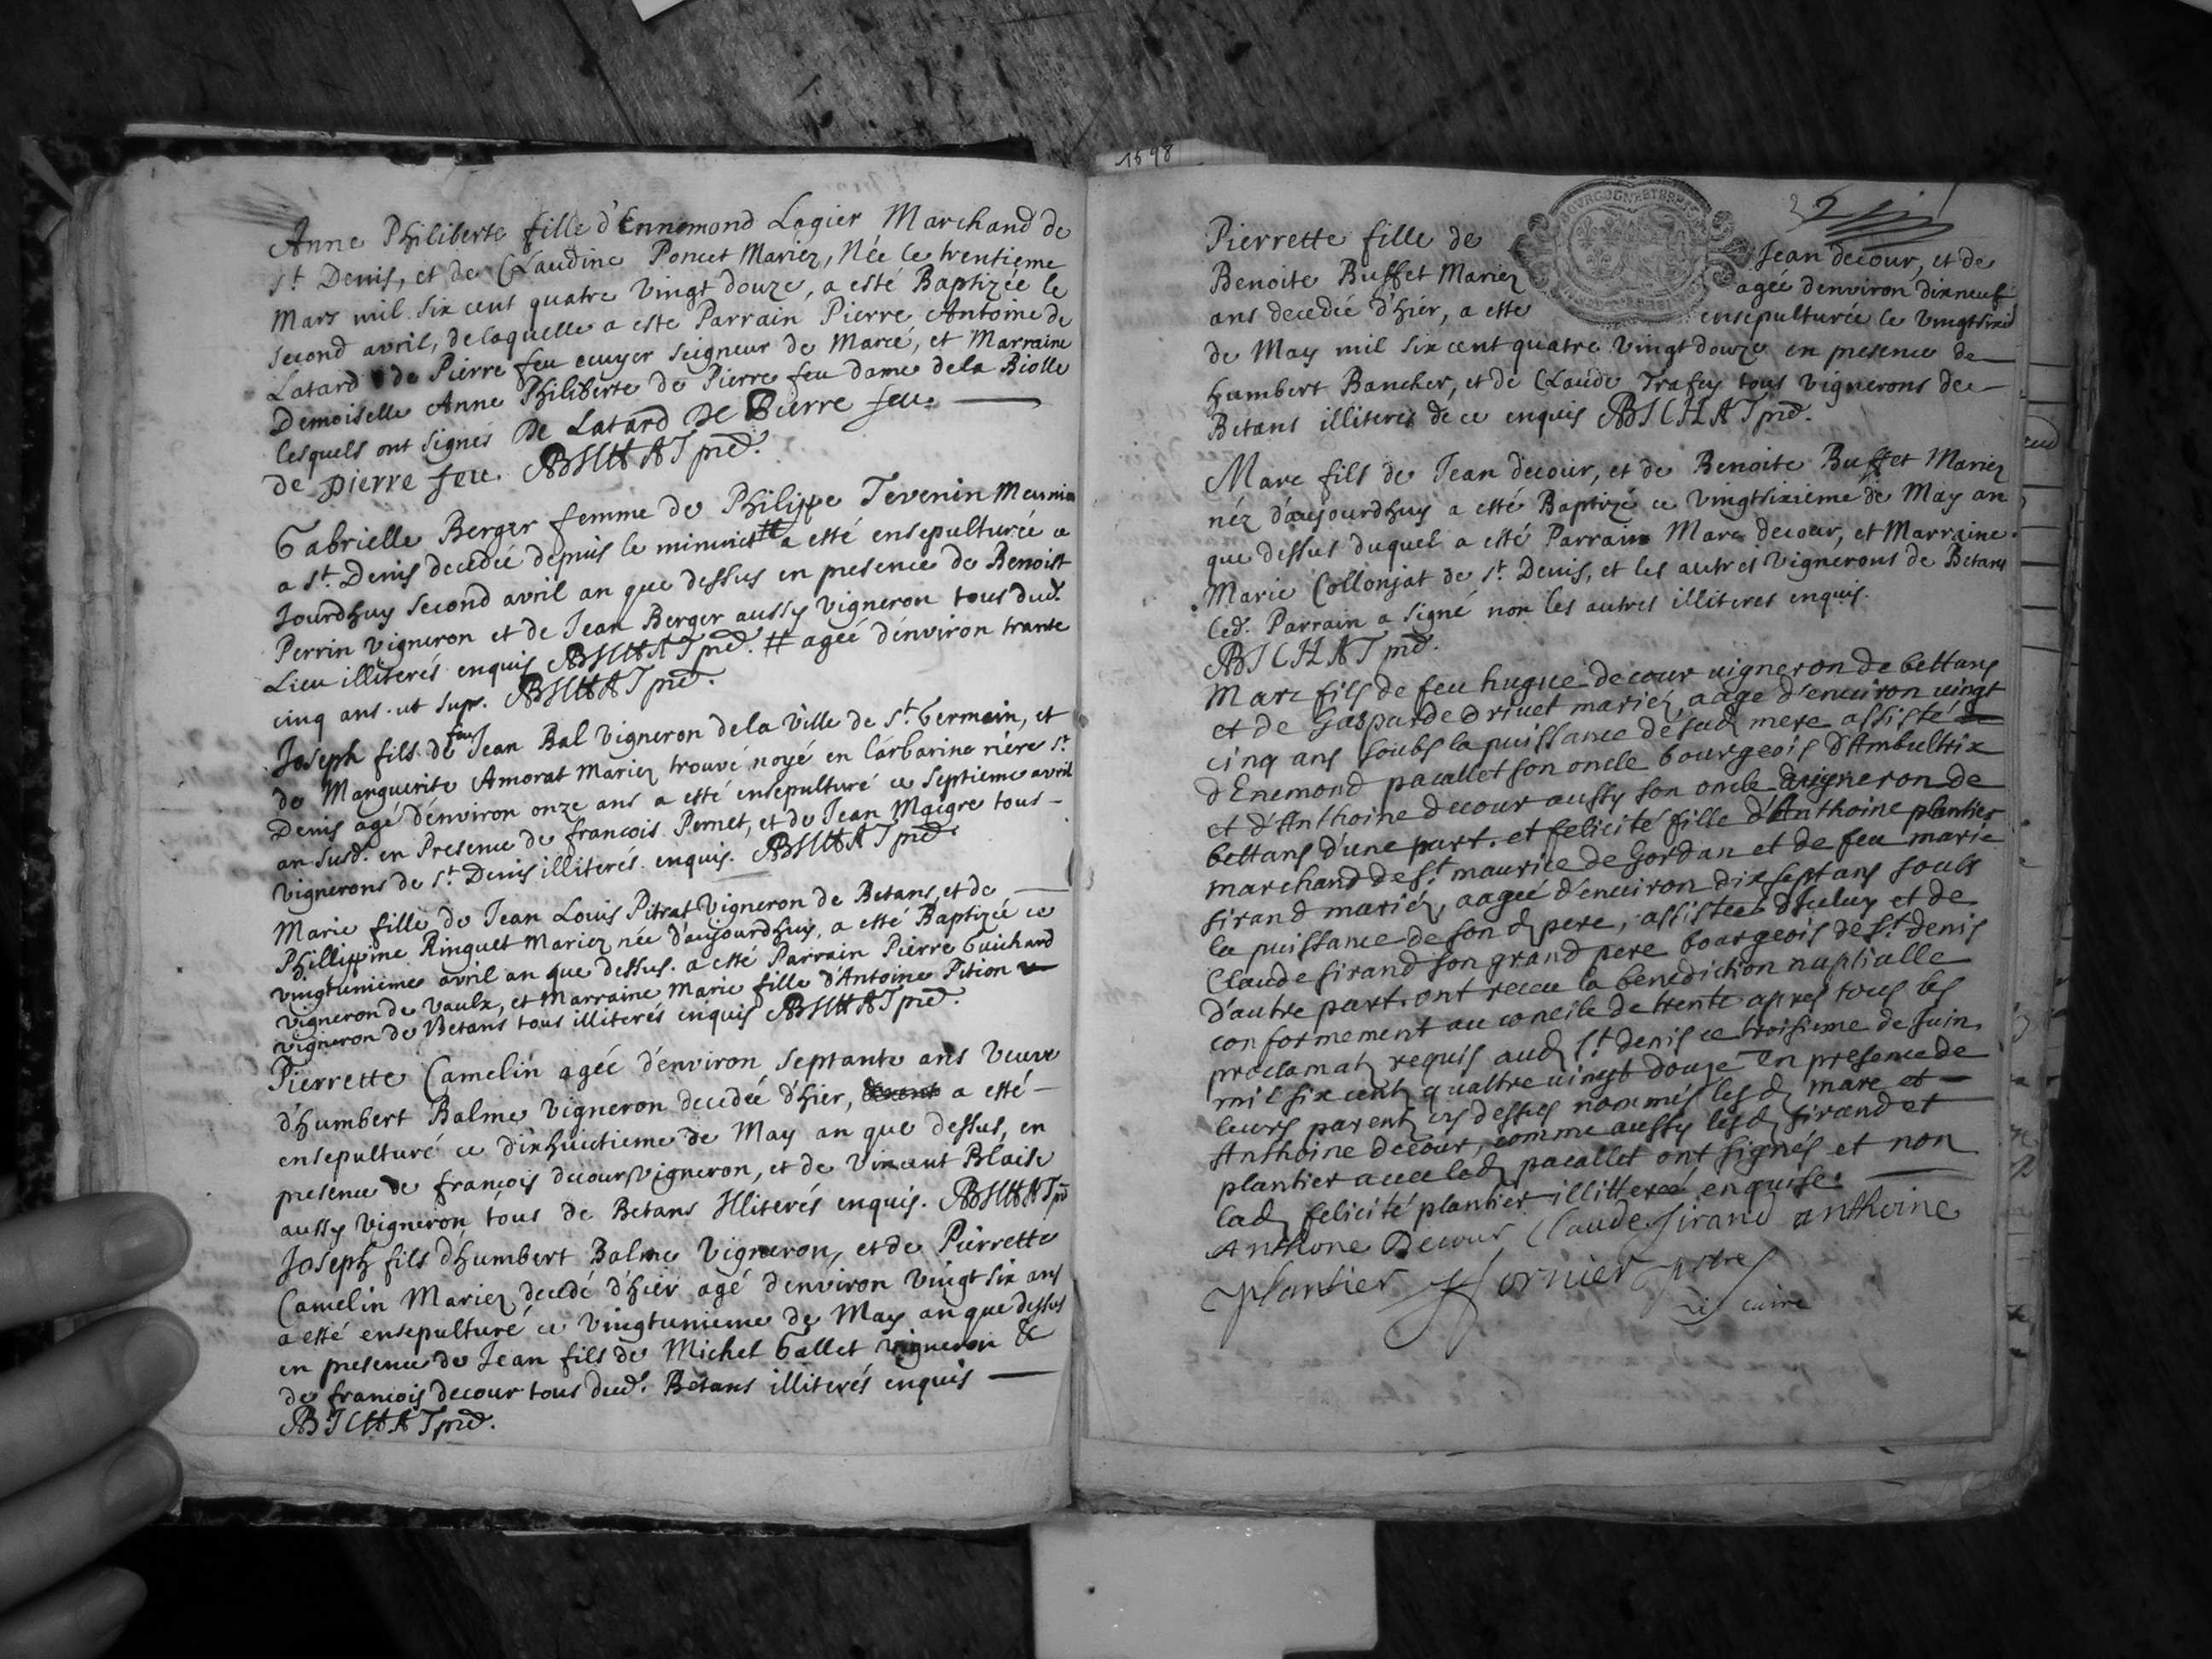 Anne Philiberte fille d'Ennemond Lagier Marchand de
St Denis, et de Claudine Poncet Mariez, Née le trentieme
Mars mil six cent quatre vingt douze, a esté Baptizée le
second avril, de laquelle a este Parrain Pierre Antoine de
Latard de Pierre feu ecuyer seigneur de Marcé, et Marraine
Demoiselle Anne Philiberte de Pierre feu dame dela Biolle
lesquels ont signés De Latard De Pierre feu.
de pierre feu. ABICHAT pré.
Gabrielle Berger femme de Philippe Tevenin Meunier
a St. Denis decedée depuis le minuict # a esté ensepulturée a
Jourdhuy second avril an que dessus en presence de Benoist
Perrin vigneron et de Jean Berger aussy vigneron tous dud.
Lieu illiterés enquis ABICHAT pré. # agée d'environ trante
cinq ans. ut supr. ABICHAT pré.
Joseph fils de feu Jean Bal vigneron dela ville de St. Germain, et
de Marguerite Amorat Mariez trouvé noyé en L'arbarine riere St.
Denis agé d'environ onze ans a esté ensepulturé ce septieme avril
an susd. en Presence de francois Pernet, et de Jean Maigre tous
vignerons de St. Denis illiterés enquis. ABICHAT pré.
Marie fille de Jean Louis Pitrat vigneron de Betans, et de
Phillippine Ringuet Mariez née d'aujourdhuy, a esté Baptizée ce
vingtunieme avril an que dessus. a esté Parrain Pierre Guichard
vigneron de Vaulx, et Marraine Marie fille d'Antoine Pition
vigneron de Betans tous illiterés enquis ABICHAT pré.
Pierrette Camelin agée d'environ septante ans veuve
d'humbert Balme vigneron decedée d'hier, a esté
ensepulturé ce dixhuictieme de May an que dessus, en
presence de francois decour vigneron, et de Vincent Blaise
aussy vigneron tous de Betans Illiterés enquis. ABICHAT pré
Joseph fils d'humbert Balme vigneron, et de Pierrette
Camelin Mariez decedé d'hier agé d'environ vingt six ans
a esté ensepulturé ce vingtunieme de May an que dessus
en presence de Jean fils de Michel Gallet vigneron &
de francois decour tous dud. Betans illiterés enquis
ABICHAT pré.
1698
BOURGOGNE ET BRESSE
Pierrette fille de Jean decour, et de
Benoite Buffet Mariez agée d'environ dixneuf
ans decedée d'hier, a esté ensepulturée le vingtsixie
de May mil six cent quatre vingt douze en presence de
humbert Bancher, et de Claude Trafey tous vignerons de
Betans illiterés de ce enquis ABICHAT pré.
Marc fils de Jean decour, et de Benoite Buffet Mariez
néz d'aujourdhuy a esté Baptizé ce vingtsixieme de May an
que dessus duquel a esté Parrain Marc decour, et Marraine
Marie Collonjat de St. Denis, et les autres vignerons de Betans
led. Parrain a signé non les autres illiteres enquis.
ABICHAT pré.
Marc fils de feu hugue decour vigneron de bettans
et de Gasparde drivet mariez, aage d'environ vingt
cinq ans soubs la puissance de sad mere assisté
d'Enemond pacallet son oncle bourgeois d'Ambultrix
et d'Anthoine decour aussy son oncle vigneron de
bettans d'une part. et felicité fille d'Anthoine plantier
marchand de St. maurice de Gordan et de feu marie
sirand mariéz, aagée d'environ dix sept ans soubs
la puissance de son d pere, assistee d'Iceluy et de
Claude sirand son grand pere bourgeois de St. denis
d'autre part. ont receu la benediction nuptialle
conformement au concile de trente apres tous les
proclamatz requis aud St. denis ce troisieme de Juin
mil six centz quattre vingt douze en presence de
leurs parentz cy dessus nommés lesd marc et
Anthoine decour, comme aussy lesd sirand et
plantier avec led pacallet ont signés et non
lad felicité plantier illitteree enquise.
Anthone Decour Claude Sirand anthoine
plantier Hornier ptre
vicaire